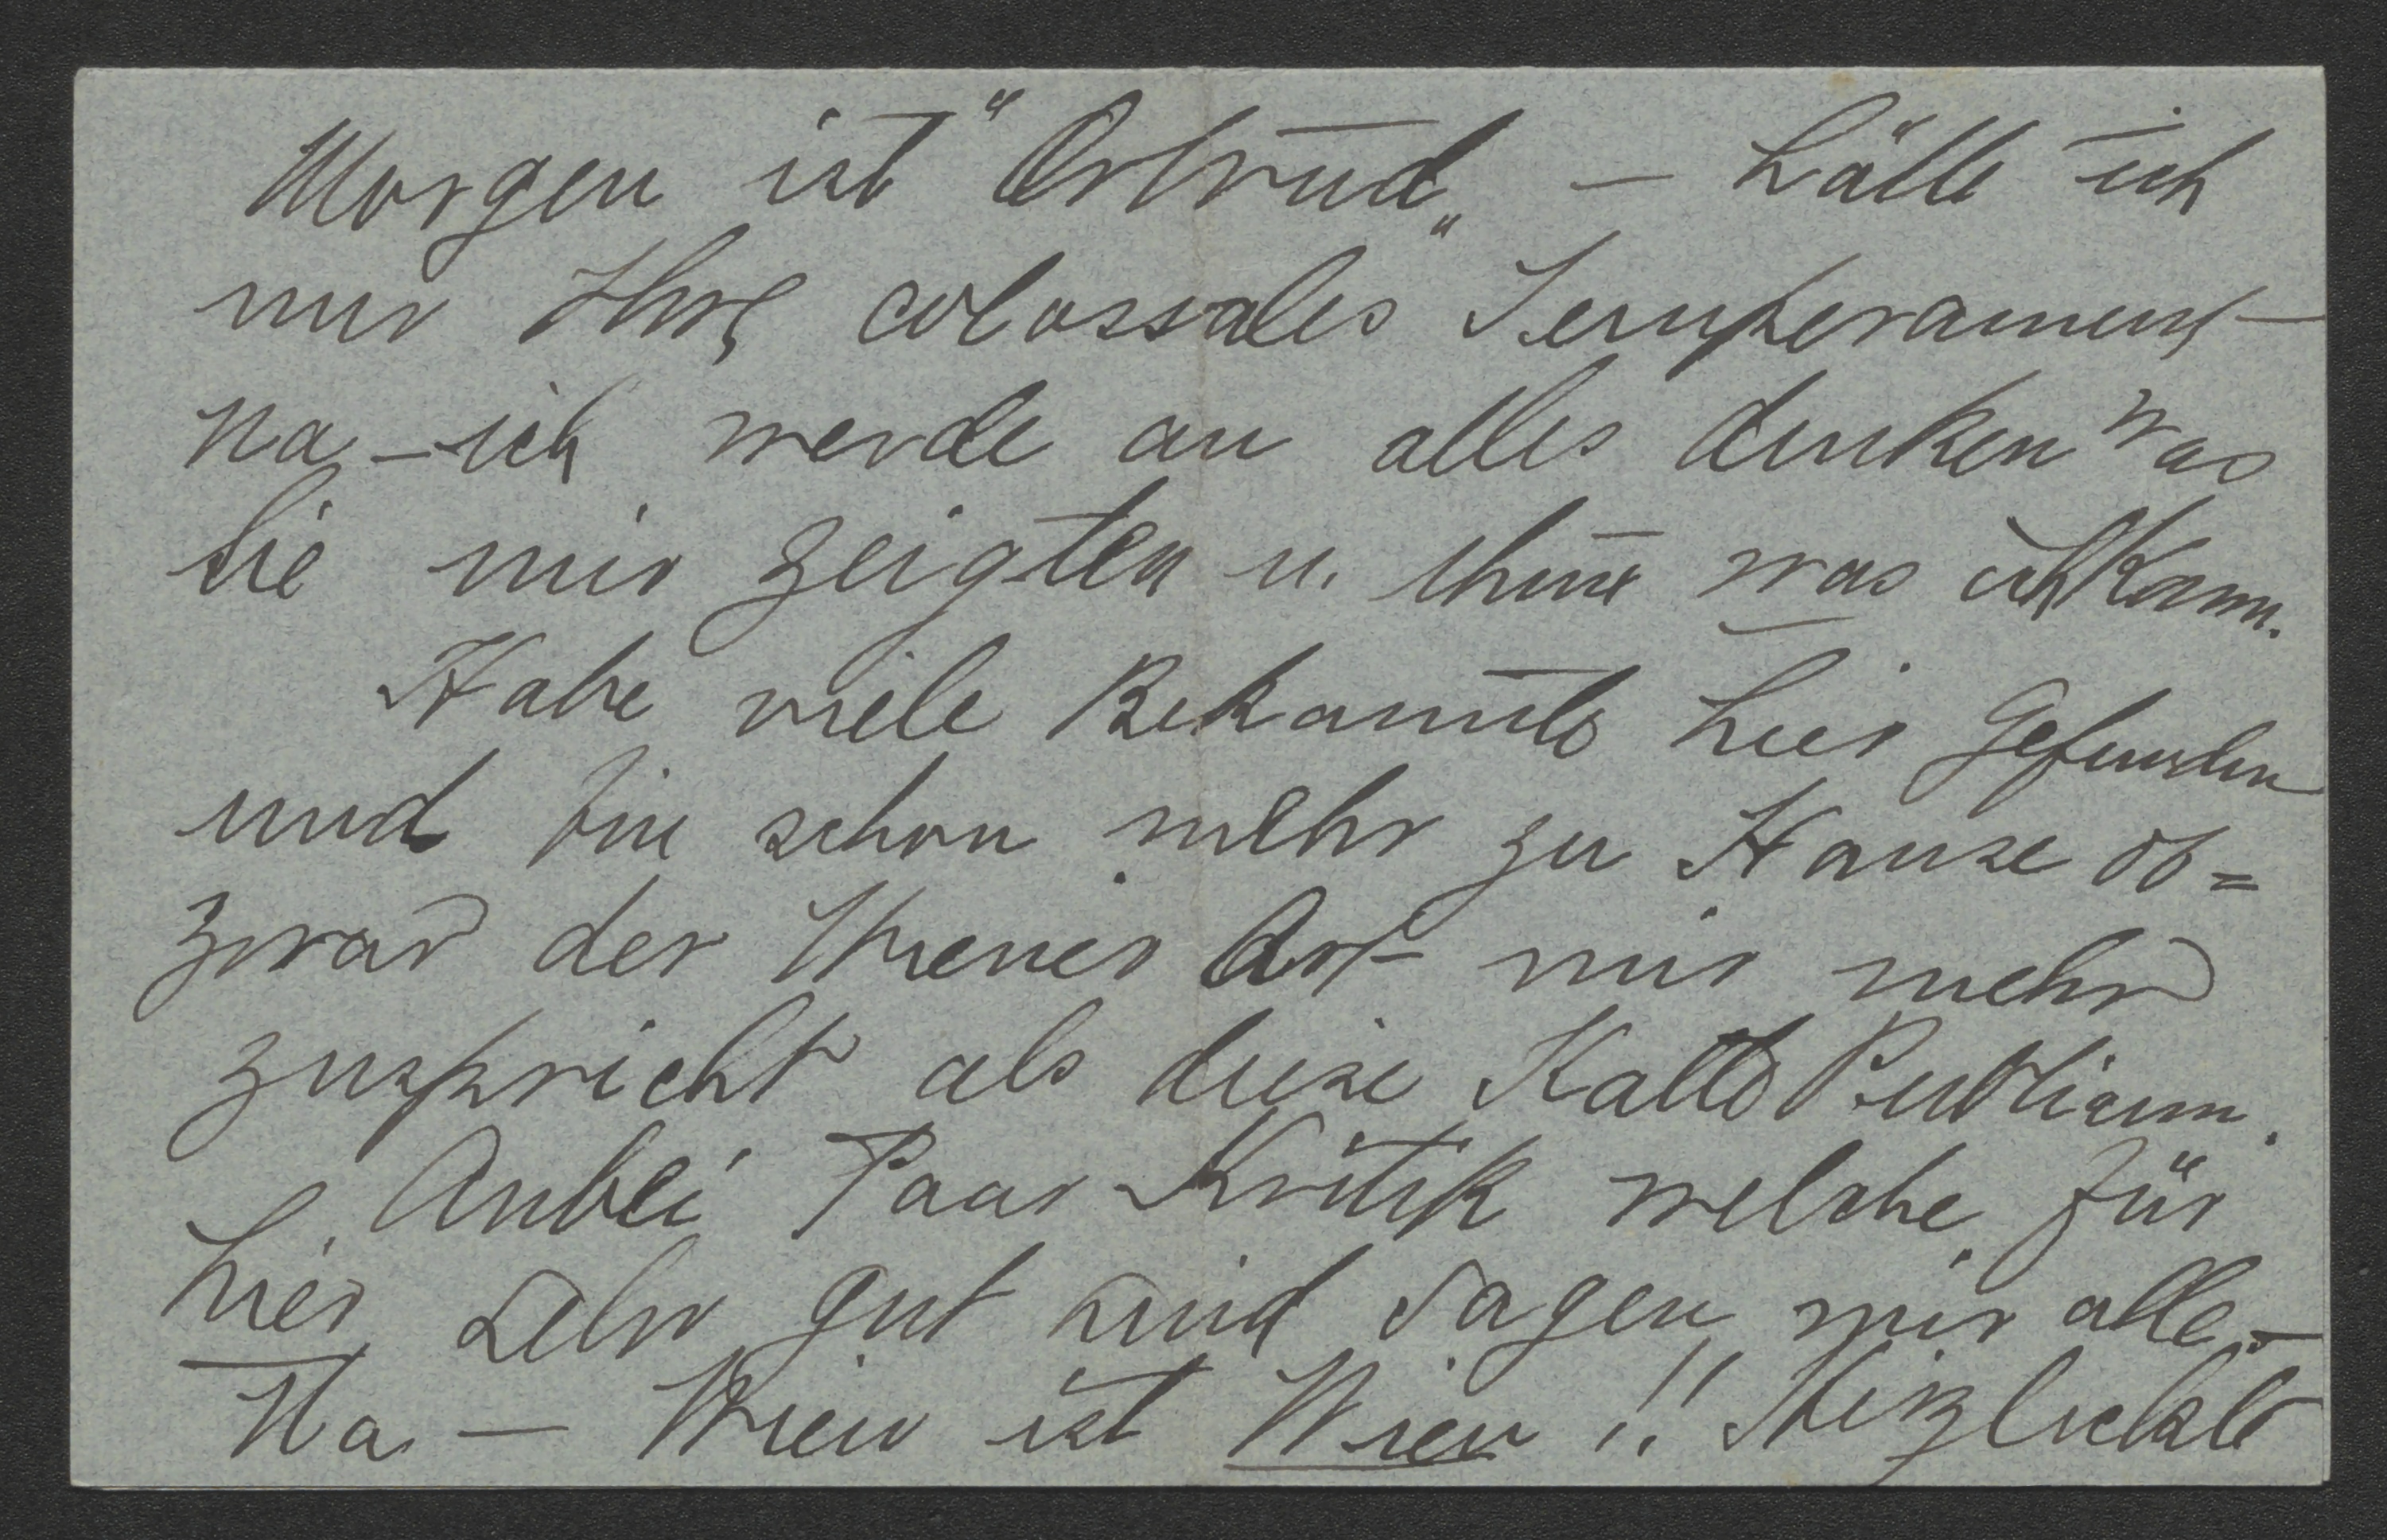 Morgen ist "Ortrud" — hätte ich
nur Ihre colossales Temperament —
na — ich werde an alles denken was
Sie mir zeigten u. thue was ich kann.
Habe viele Bekannte hier gefunden
und bin schon mehr zu Hause ob=
zwar der Wiener Art mir mehr
zuspricht als diese Kalte Publicum.
Anbei Paar Kritik welche für
hier sehr gut sind sagen mir alle. —
Na — Wien ist Wien !! Herzlichste